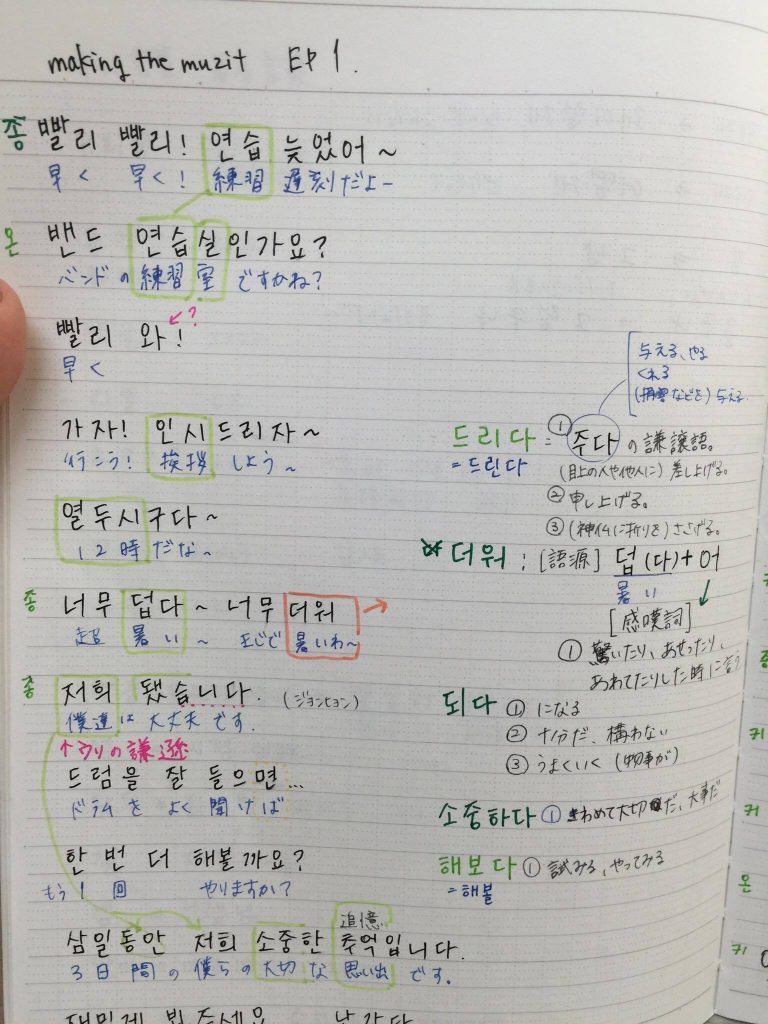 making the muzit EP 1.
종 빨리 빨리! 연습 늦었어~
早く 早く! 練習 遅刻だよー
온 밴드 연습실인가요?
バンドの練習室ですかね?
빨리 와!
?
早く
가자! 인사드리자~
行こう! 挨拶しよう~
열두시구다~
12時だな~
종 너무 덥다~ 너무 더워 →
超暑い~ まじで暑いわ~
종 저희 됐습니다. (ジョンヒョン)
僕達は大丈夫です。
↑ウリの謙遜
드럼을 잘 들으면...
ドラムをよく聞けば
한 번 더 해볼까요?
もう1回 やりますか?
追憶
삼일동안 저희 소중한 추억입니다.
3日間の僕らの大切な思い出です。
与える、やる
くれる
(損害などを)与える
드리다 = ① 주다の謙譲語。
= 드린다
(目上の人や他人に)差し上げる。
② 申し上げる。
③ (神仏に祈りを)ささげる。
더워 : [語源] 덥(다)+어
暑い
[感嘆詞]
① 驚いたり、あせったり、
あわてたりした時に言う
되다 ① になる
② 十分だ、構わない
③ うまくいく (物事が)
소중하다 ① きわめて大切だ、大事だ
해보다 ① 試みる、やってみる
= 해볼
커
커
온
키